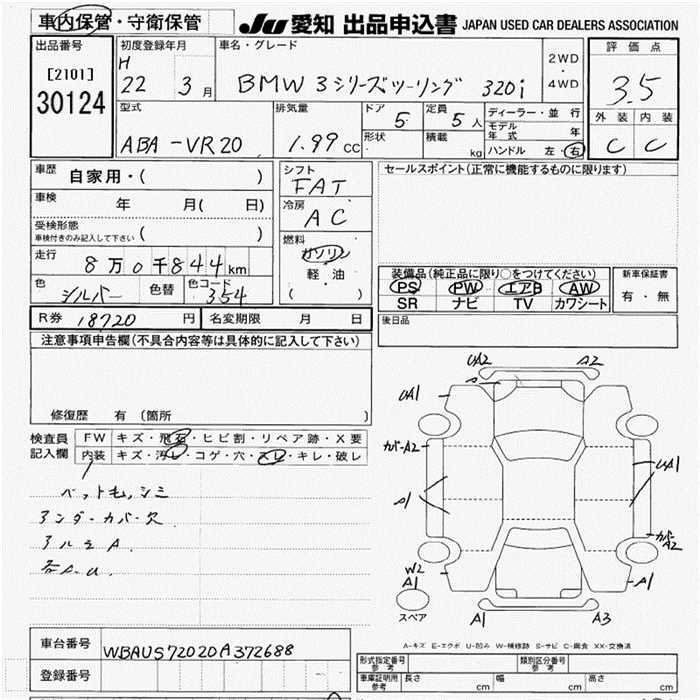 車内保管・守衛保管 JU 愛知 出品申込書 JAPAN USED CAR DEALERS ASSOCIATION
出品番号
[2101]
30124
初度登録年月
H
22 3 月
車名・グレード
BMW 3シリーズツーリング 320i
2WD
・
4WD
評価点
3.5
外装 内装
C C
型式
ABA-VR20
排気量
1.99 CC
ドア
5
定員
5 人
形状
積載
kg
ディーラー・並行
モデル年式 年
ハンドル 左・右
車歴
自家用・( )
車検
年 月( 日)
受検形態
車検付きのみ記入して下さい ( )
走行
8 万 0 千 844 km
色
シルバー
色替
色コード
354
シフト
FAT
冷房
AC
燃料
ガソリン
軽・油
( )
セールスポイント(正常に機能するものに限ります)
装備品(純正品に限り○をつけてください)
PS PW エアB AW
SR ナビ TV カワシート
新車保証書
有・無
R券 18720 円
名変期限 月 日
後日品
注意事項申告欄(不具合内容等は具体的に記入して下さい)
修復歴 有(箇所 )
検査員
記入欄
FW キズ・飛石・ヒビ割・リペア跡・X要
内装 キズ・汚レ・コゲ・穴・スレ・キレ・破レ
アンダーカバー欠
アルミA
各A.U.
UA2 A2
A
UA1
カバーA2
A1
UA1
カバー
A2
W2
A1
A1
スペア
A1 A3
A-キズ E-エクボ U-凹み W-補修跡 S-サビ C-腐食 XX-交換済
車台番号
WBAUS72020A372688
登録番号
形式指定番号
参考
類別区分番号
参考
車庫証明用
参考
長さ cm 幅 cm 高さ cm